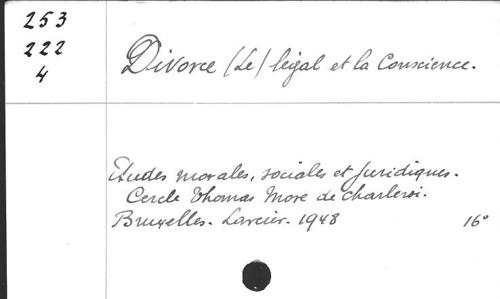 253
222
4
Divorce (Le) légal et la Conscience.
Etudes morales, sociales et juridiques.
Cercle Thomas More de Charleroi.
Bruxelles. Larcier. 1948 16°